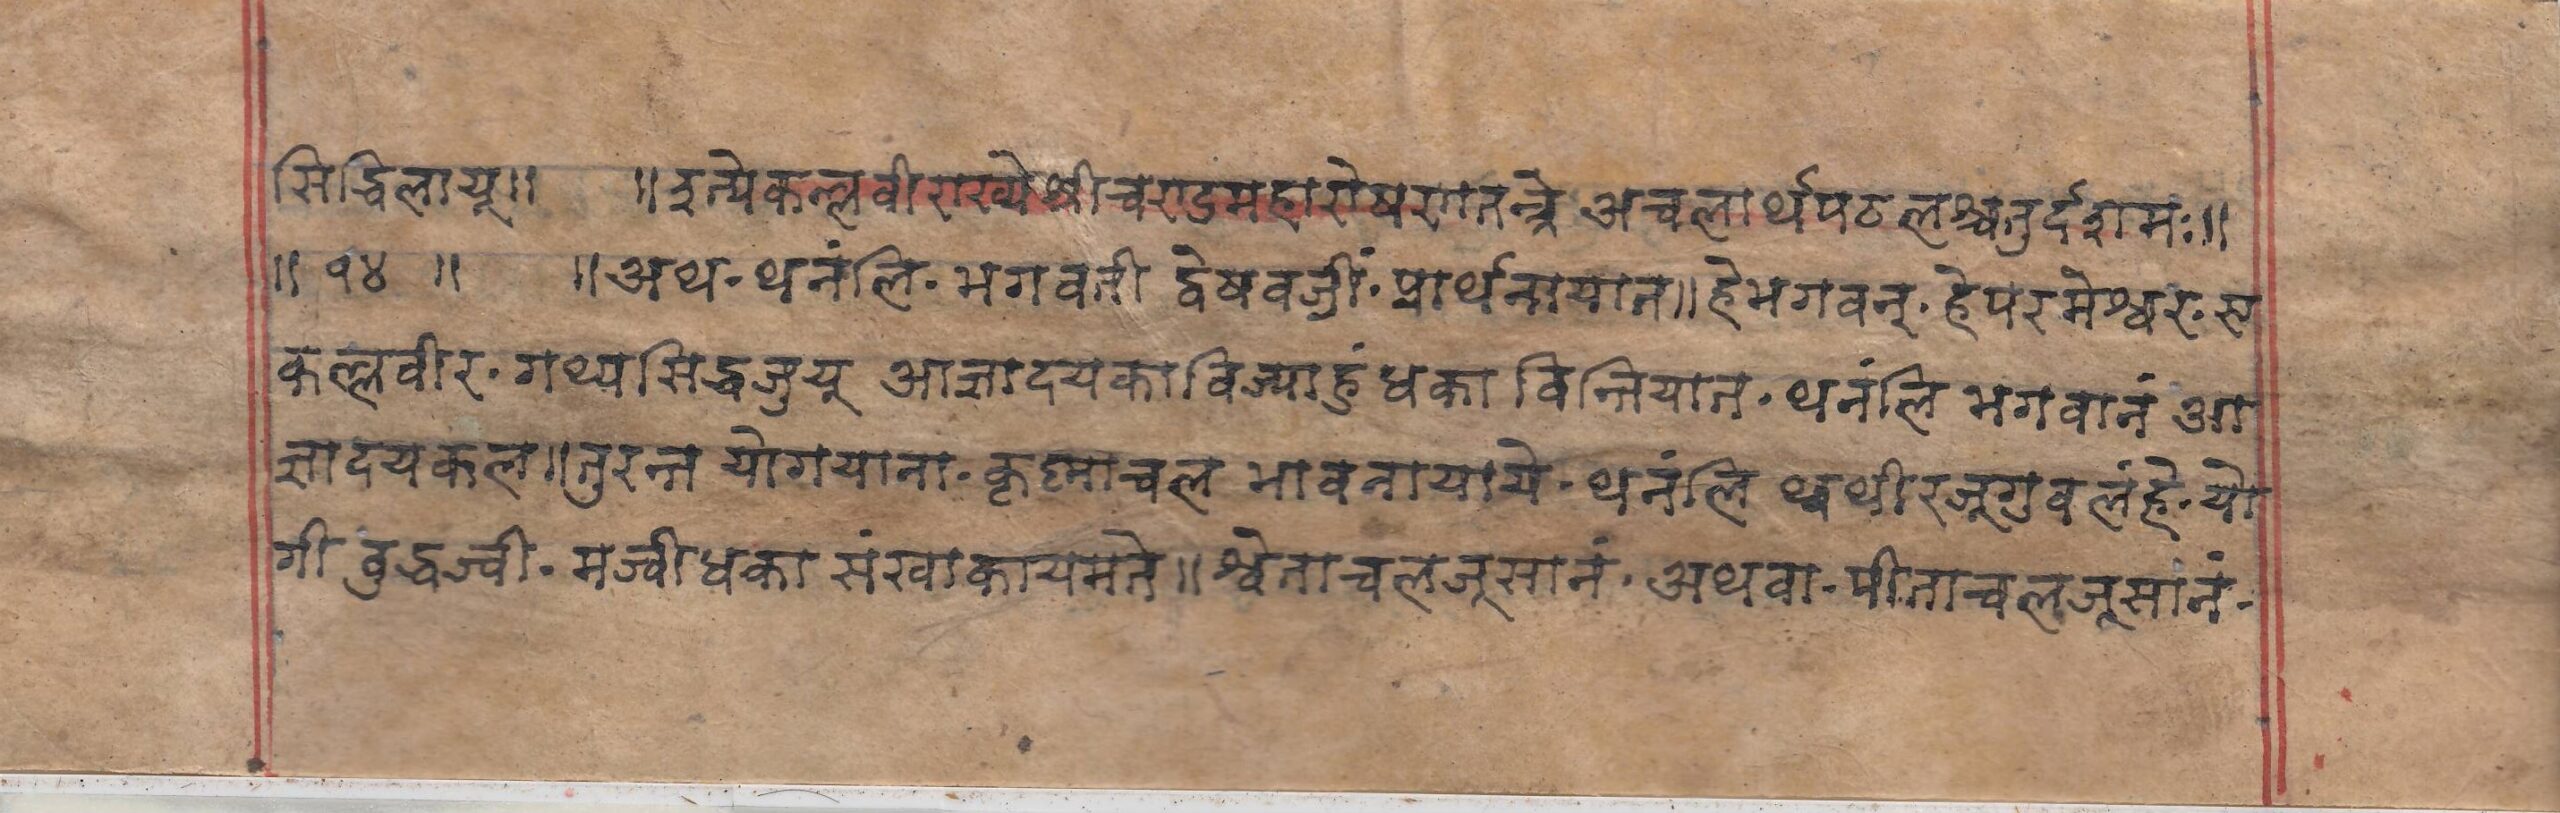 सिद्धिलायू॥ ॥इत्येकल्लवीराख्येश्रीचण्डमहारोषणतन्त्रे अचलार्थपठलश्चतुर्दशमः॥
॥ १४ ॥ ॥अथ· थनंलि· भगवती द्वेषवज्रीं· प्रार्थनायात॥हेभगवन्· हेपरमेश्वर· ए
कल्लवीर· गथ्यसिद्धजुयू आज्ञादयकाविज्याहुं धका विन्तियात· थनंलि भगवानं आ
ज्ञादयकल॥तुरन्त योगयाना· कृष्णाचल भावनायाये· थनंलि थ्वथीरजूगुवलंहे· यो
गी वुद्धज्वी· मज्वीधका संखाकायमते॥श्वेताचलजूसानं· अथवा· पीताचलजूसानं·